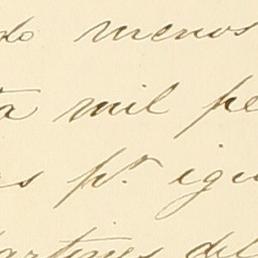 do menos
ta mil pe
as pr. igu
artines del